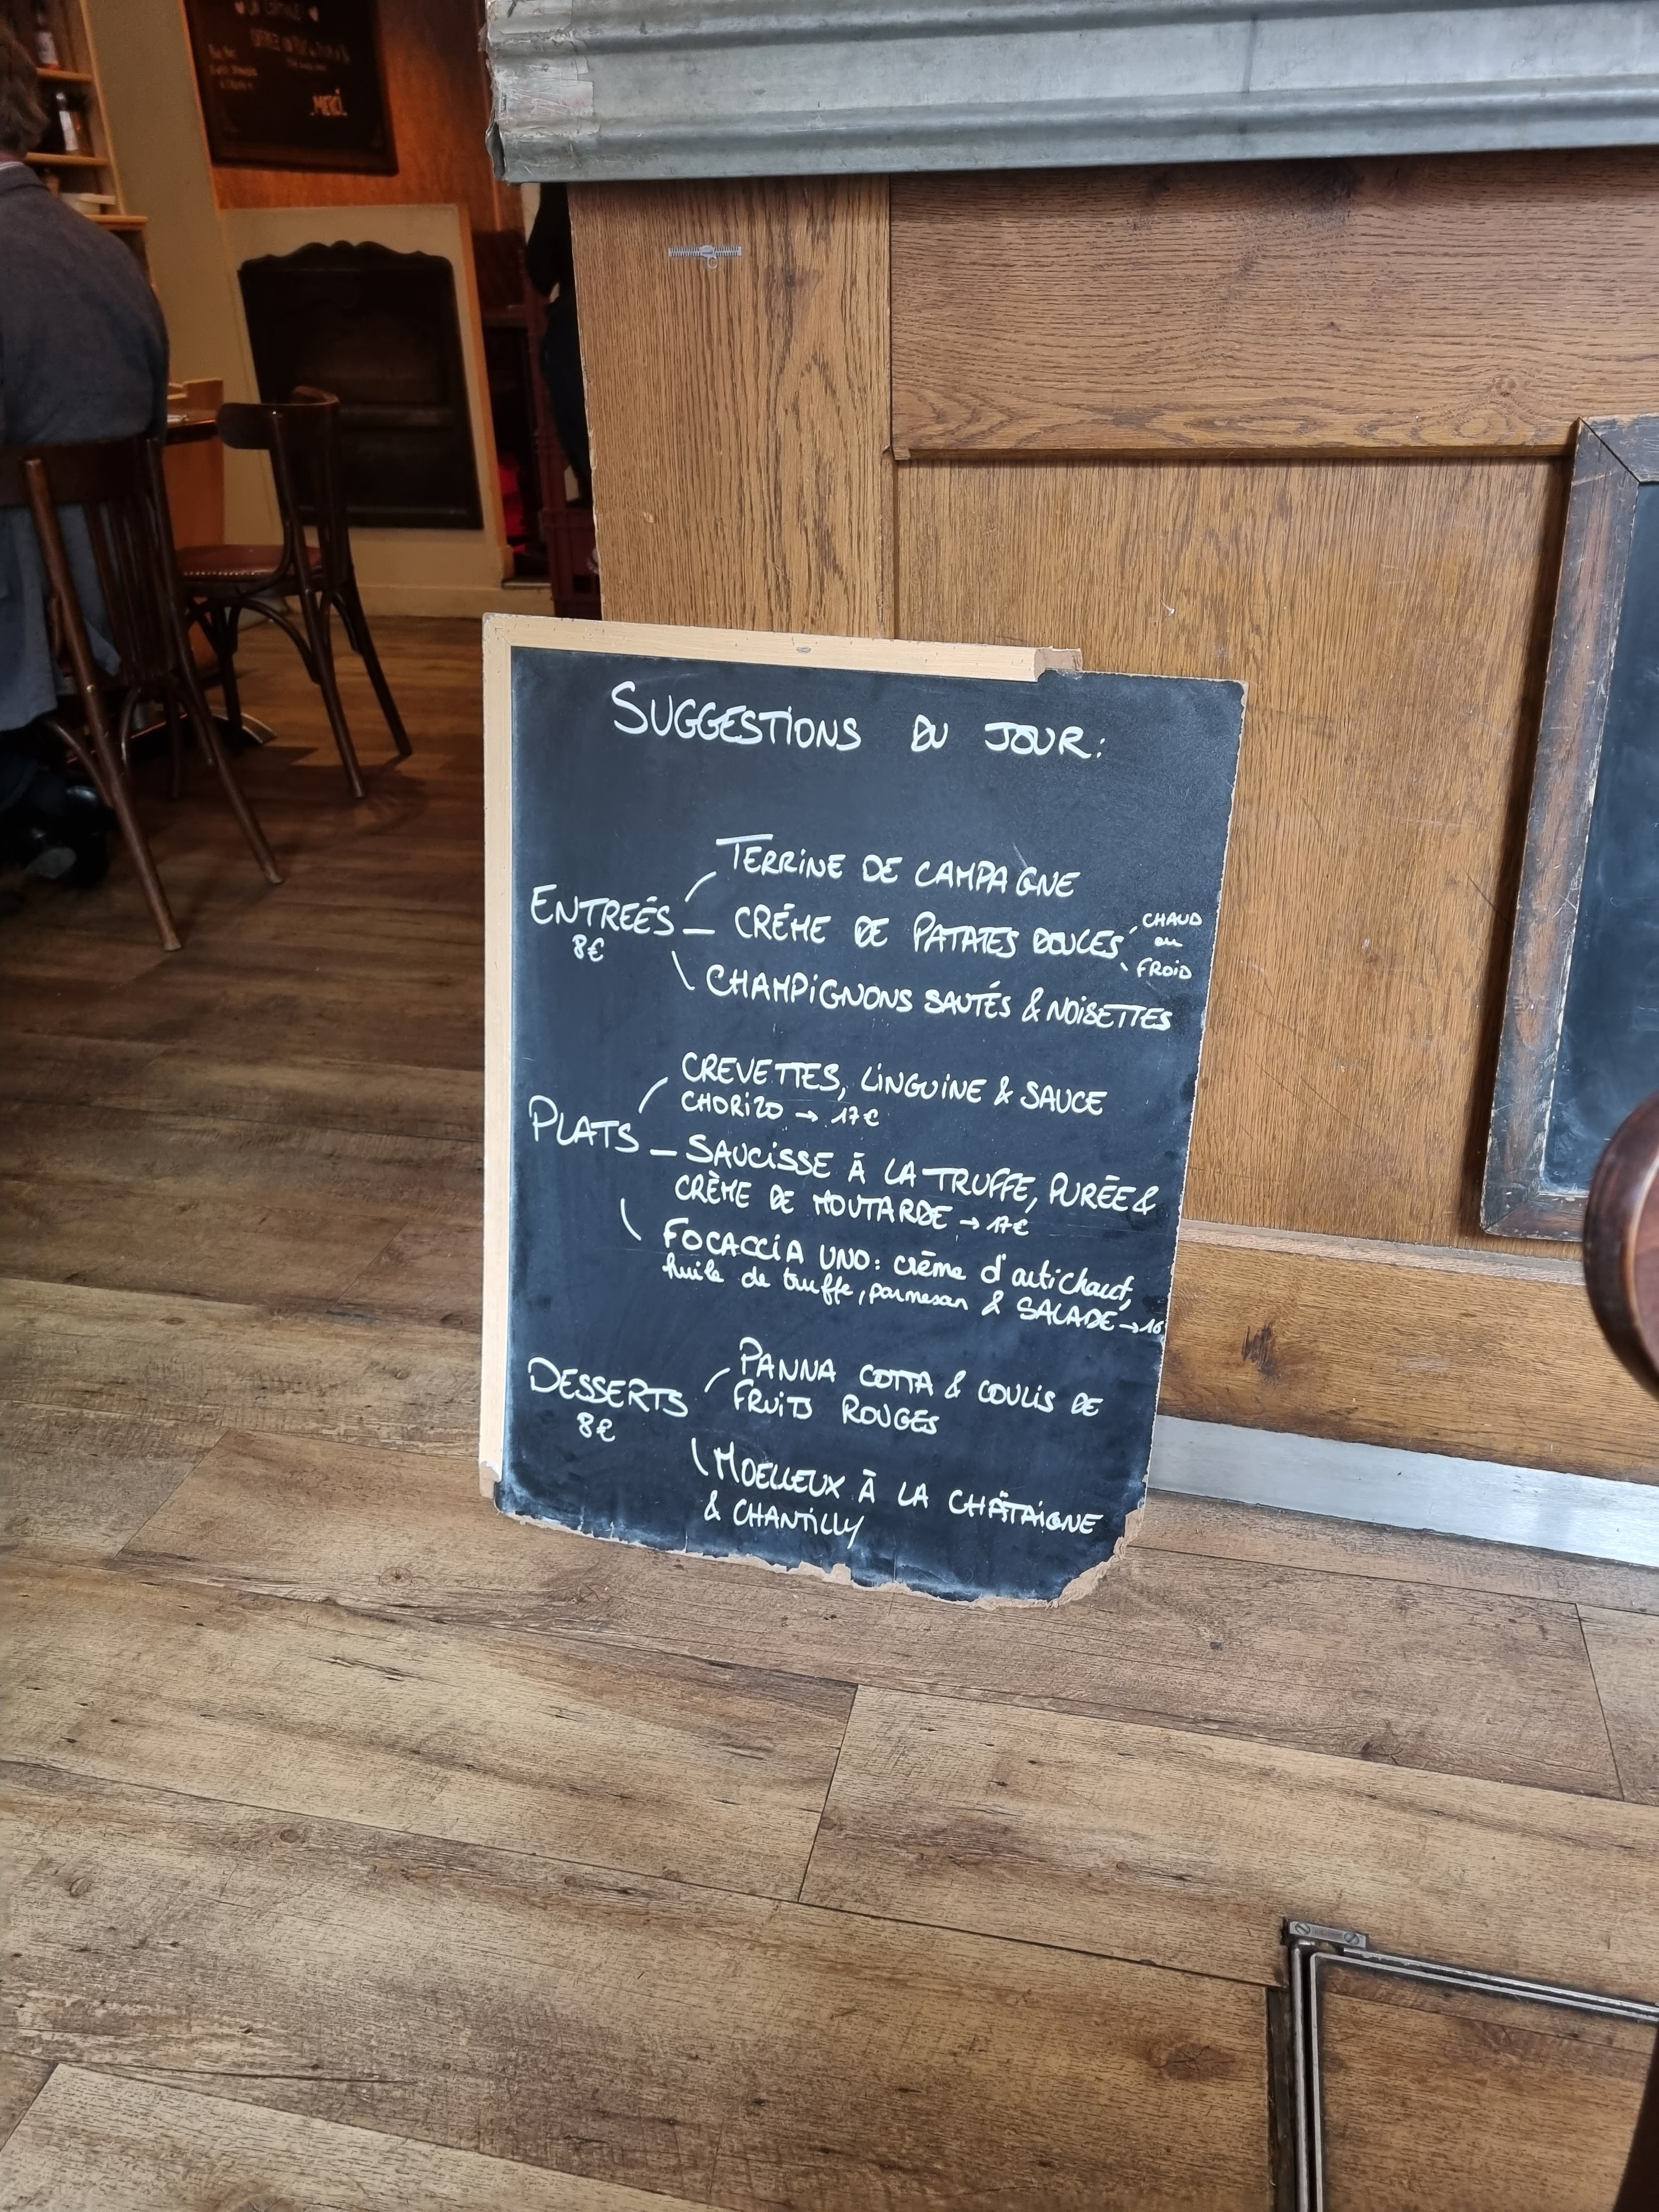 MERCI
SUGGESTIONS DU JOUR:
TERRINE DE CAMPAGNE
ENTREÉS
8€
CRÉME DE PATATES DOUCES
CHAUD
ou
FROID
CHAMPIGNONS SAUTÉS & NOISETTES
CREVETTES, LINGUINE & SAUCE
CHORIZO → 17€
PLATS
SAUCISSE À LA TRUFFE, PURÉE &
CRÈME DE MOUTARDE → 17€
FOCACCIA UNO: crème d'artichaut,
huile de truffe, parmesan & SALADE → 16
DESSERTS
8€
PANNA COTTA & COULIS DE
FRUITS ROUGES
MOELLEUX À LA CHÂTAIGNE
& CHANTILLY